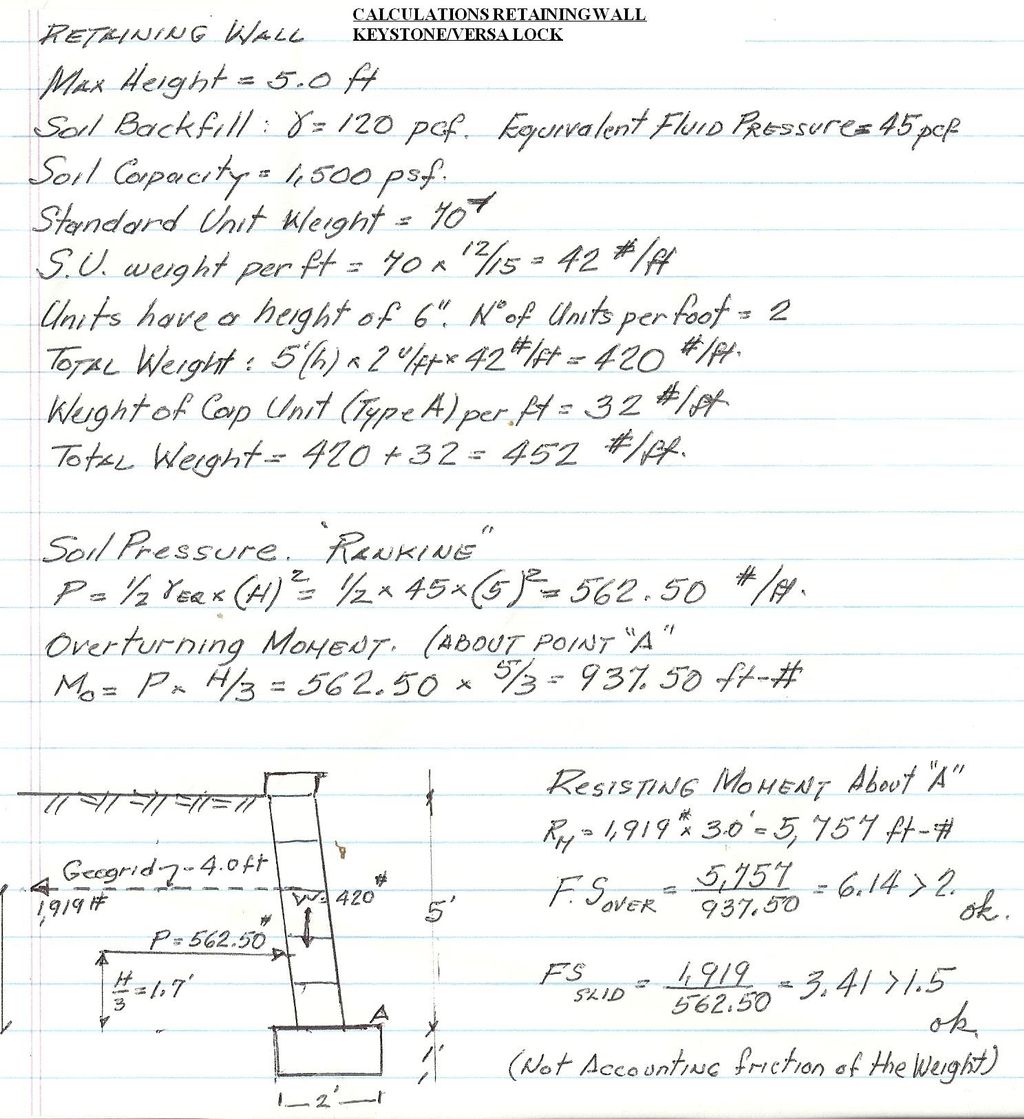 CALCULATIONS RETAINING WALL
KEYSTONE/VERSA LOCK
RETAINING WALL
Max Height = 5.0 ft
Soil Backfill: γ = 120 pcf. Equivalent Fluid Pressure = 45 pcf
Soil Capacity = 1,500 psf.
Standard Unit Weight = 70#
S.U. weight per ft = 70 x 12/15 = 42 #/ft
Units have a height of 6". N° of Units per foot = 2
Total Weight: 5'(h) x 2 U/ft x 42 #/ft = 420 #/ft.
Weight of Cap Unit (Type A) per ft = 32 #/ft.
Total Weight = 420 + 32 = 452 #/ft.
Soil Pressure. "RANKINE"
P = 1/2 γEQ x (H)² = 1/2 x 45 x (5)² = 562.50 #/ft.
Overturning Moment. (ABOUT POINT "A"
Mo = P x H/3 = 562.50 x 5/3 = 937.50 ft-#
Resisting Moment About "A"
RM = 1,919# x 3.0' = 5,757 ft-#
F.S OVER = 5,757/937.50 = 6.14 > 2. ok.
FS SLID = 1,919/562.50 = 3.41 > 1.5 ok.
(Not Accounting friction of the Weight)
Geogrid - 4.0 ft
1,919 #
W. 420#
5'
P = 562.50#
H/3 = 1.7'
A
1'
2'